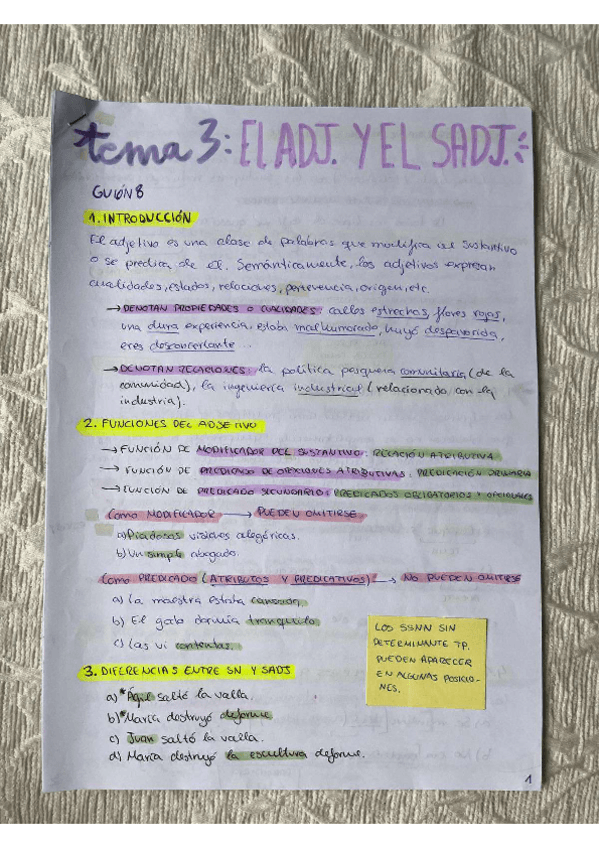 tema 3: El ADJ. Y EL SADJ.
GUIÓN 8
1. INTRODUCCIÓN
El adjetivo es una clase de palabras que modifica al sustantivo
o se predica de él. Semánticamente, los adjetivos expresan
cualidades, estados, relaciones, pertenencia, origen, etc.
→ DENOTAN PROPIEDADES O CUALIDADES: calles estrechas, flores rojas,
una dura experiencia, estaba malhumorado, huyó despavorida,
eres desconcertante...
→ DENOTAN RELACIONES: la política pesquera comunitaria (de la
comunidad), la ingeniería industrial (relacionado con la
industria).
2. FUNCIONES DEL ADJETIVO
→ FUNCIÓN DE MODIFICADOR DEL SUSTANTIVO: RELACIÓN ATRIBUTIVA
→ FUNCIÓN DE PREDICADO DE ORACIONES ATRIBUTIVAS: PREDICACIÓN PRIMARIA
→ FUNCIÓN DE PREDICADO SECUNDARIO: PREDICADOS OBLIGATORIOS Y OPCIONALES
Como MODIFICADOR → PUEDEN OMITIRSE
a) Piadosas visiones alegóricas.
b) Un simple abogado.
Como PREDICADO (ATRIBUTOS Y PREDICATIVOS) → NO PUEDEN OMITIRSE
a) La maestra estaba cansada.
b) El gato dormía tranquilo.
c) Las vi contentas.
LOS SSNN SIN
DETERMINANTE TP.
PUEDEN APARECER
EN ALGUNAS POSICIO-
NES.
3. DIFERENCIAS ENTRE SN Y SADJ
a) *Ágil saltó la valla.
b) *María destruyó deforme
c) Juan saltó la valla.
d) María destruyó la escultura deforme.
1